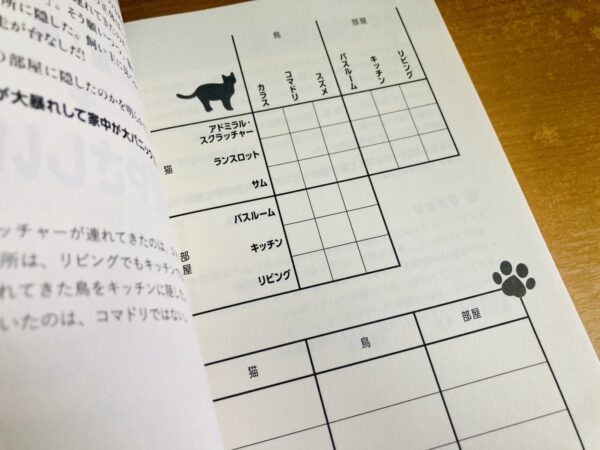 所に隠した。飼い主に
が台なしだ!
の部屋に隠したのかを明
が大暴れして家中が大パニック
ッチャーが連れてきたのは、コ
所は、リビングでもキッチン
れてきた鳥をキッチンに隠した。
いたのは、コマドリではない。
鳥
部屋
カラス
コマドリ
スズメ
バスルーム
キッチン
リビング
猫
アドミラル・
スクラッチャー
ランスロット
サム
部屋
バスルーム
キッチン
リビング
猫
鳥
部屋